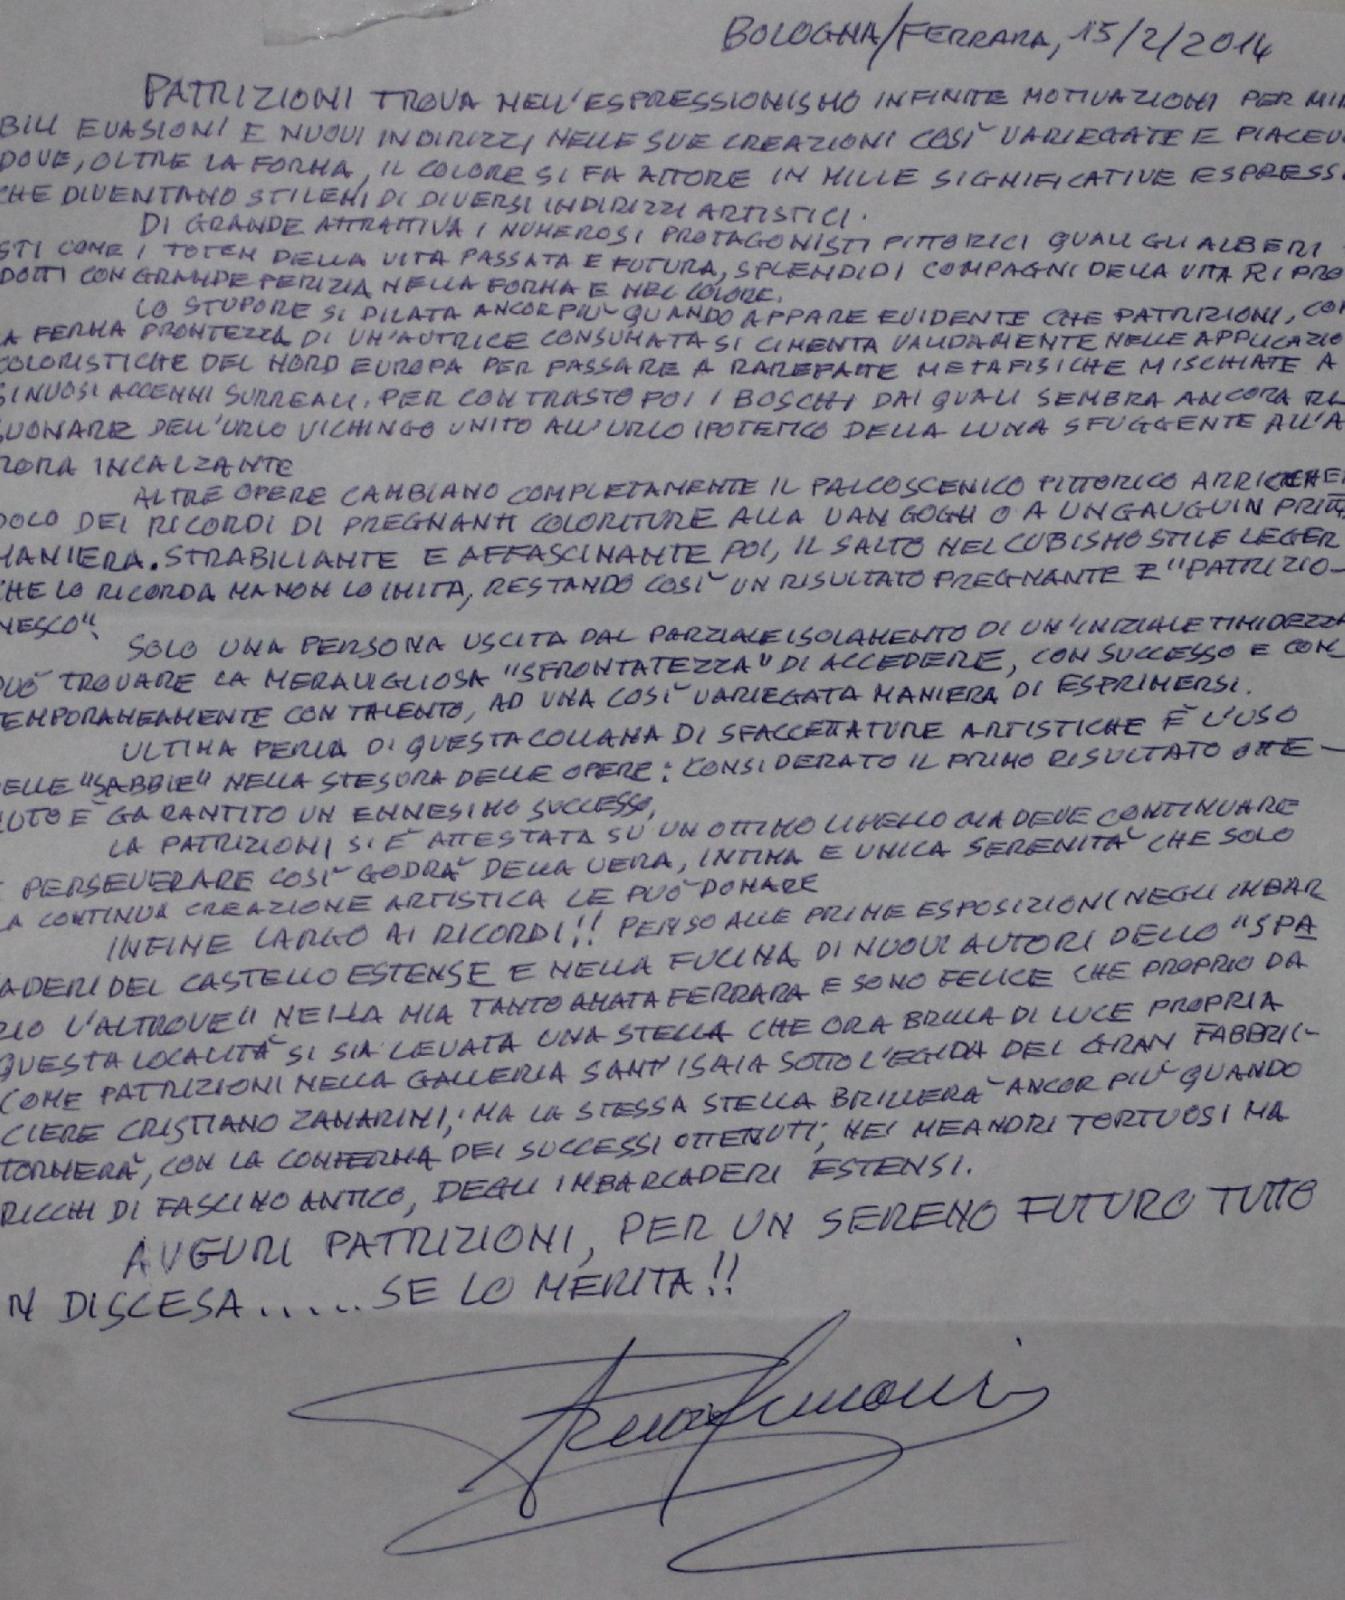 BOLOGNA/FERRARA, 15/2/2014
PATRIZIONI TROVA NELL'ESPRESSIONISMO INFINITE MOTIVAZIONI PER MIR
BILI EVASIONI E NUOVI INDIRIZZI NELLE SUE CREAZIONI COSÌ VARIEGATE E PIACEV
DOVE, OLTRE LA FORMA, IL COLORE SI FA ATTORE IN MILLE SIGNIFICATIVE ESPRESS
CHE DIVENTANO STILEMI DI DIVERSI INDIRIZZI ARTISTICI.
DI GRANDE ATTRATTIVA I NUMEROSI PROTAGONISTI PITTORICI QUALI GLI ALBERI
STI COME I TOTEM DELLA VITA PASSATA E FUTURA, SPLENDIDI COMPAGNI DELLA VITA RIPRO
DOTTI CON GRANDE PERIZIA NELLA FORMA E NEL COLORE.
LO STUPORE SI DILATA ANCOR PIÙ QUANDO APPARE EVIDENTE CHE PATRIZIONI, CON
A FERMA PRONTEZZA DI UN'AUTRICE CONSUMATA SI CIMENTA VALIDAMENTE NELLE APPLICAZIO
COLORISTICHE DEL NORD EUROPA PER PASSARE A RAREFATTE METAFISICHE MISCHIATE A
SINUOSI ACCENNI SURREALI. PER CONTRASTO POI I BOSCHI DAI QUALI SEMBRA ANCORA RI
SUONARE DELL'URLO VICHINGO UNITO ALL'URLO IPOTETICO DELLA LUNA SFUGGENTE ALL'A
RORA INCALZANTE
ALTRE OPERE CAMBIANO COMPLETAMENTE IL PALCOSCENICO PITTORICO ARRICCHEN
DOLO DEI RICORDI DI PREGNANTI COLORITURE ALLA VAN GOGH O A UN GAUGUIN PRIMA
MANIERA. STRABILIANTE E AFFASCINANTE POI, IL SALTO NEL CUBISMO STILE LEGER
CHE LO RICORDA MA NON LO IMITA, RESTANDO COSÌ UN RISULTATO PREGNANTE E "PATRIZIO-
NESCO".
SOLO UNA PERSONA USCITA DAL PARZIALE ISOLAMENTO DI UN'INIZIALE TIMIDEZZA
PUÒ TROVARE LA MERAVIGLIOSA "SFRONTATEZZA" DI ACCEDERE, CON SUCCESSO E CON_
TEMPORANEAMENTE CON TALENTO, AD UNA COSÌ VARIEGATA MANIERA DI ESPRIMERSI.
ULTIMA PERLA DI QUESTA COLLANA DI SFACCETTATURE ARTISTICHE È L'USO
DELLE "SABBIE" NELLA STESURA DELLE OPERE: CONSIDERATO IL PRIMO RISULTATO OTTE-
NUTO È GARANTITO UN ENNESIMO SUCCESSO,
LA PATRIZIONI SI È ATTESTATA SU UN OTTIMO LIVELLO MA DEVE CONTINUARE
E PERSEVERARE COSÌ GODRÀ DELLA VERA, INTIMA E UNICA SERENITÀ CHE SOLO
LA CONTINUA CREAZIONE ARTISTICA LE PUÒ DONARE
INFINE LARGO AI RICORDI!! PENSO ALLE PRIME ESPOSIZIONI NEGLI IMBAR
CADERI DEL CASTELLO ESTENSE E NELLA FUCINA DI NUOVI AUTORI DELLO "SPA
ZIO L'ALTROVE" NELLA MIA TANTO AMATA FERRARA E SONO FELICE CHE PROPRIO DA
QUESTA LOCALITÀ SI SIA LEVATA UNA STELLA CHE ORA BRILLA DI LUCE PROPRIA
COME PATRIZIONI NELLA GALLERIA SANT'ISAIA SOTTO L'EGIDA DEL GRAN FABBRIC-
CIERE CRISTIANO ZANARINI; MA LA STESSA STELLA BRILLERÀ ANCOR PIÙ QUANDO
TORNERÀ, CON LA CONFERMA DEI SUCCESSI OTTENUTI, NEI MEANDRI TORTUOSI MA
RICCHI DI FASCINO ANTICO, DEGLI IMBARCADERI ESTENSI.
AUGURI PATRIZIONI, PER UN SERENO FUTURO TUTTO
IN DISCESA..... SE LO MERITA!!